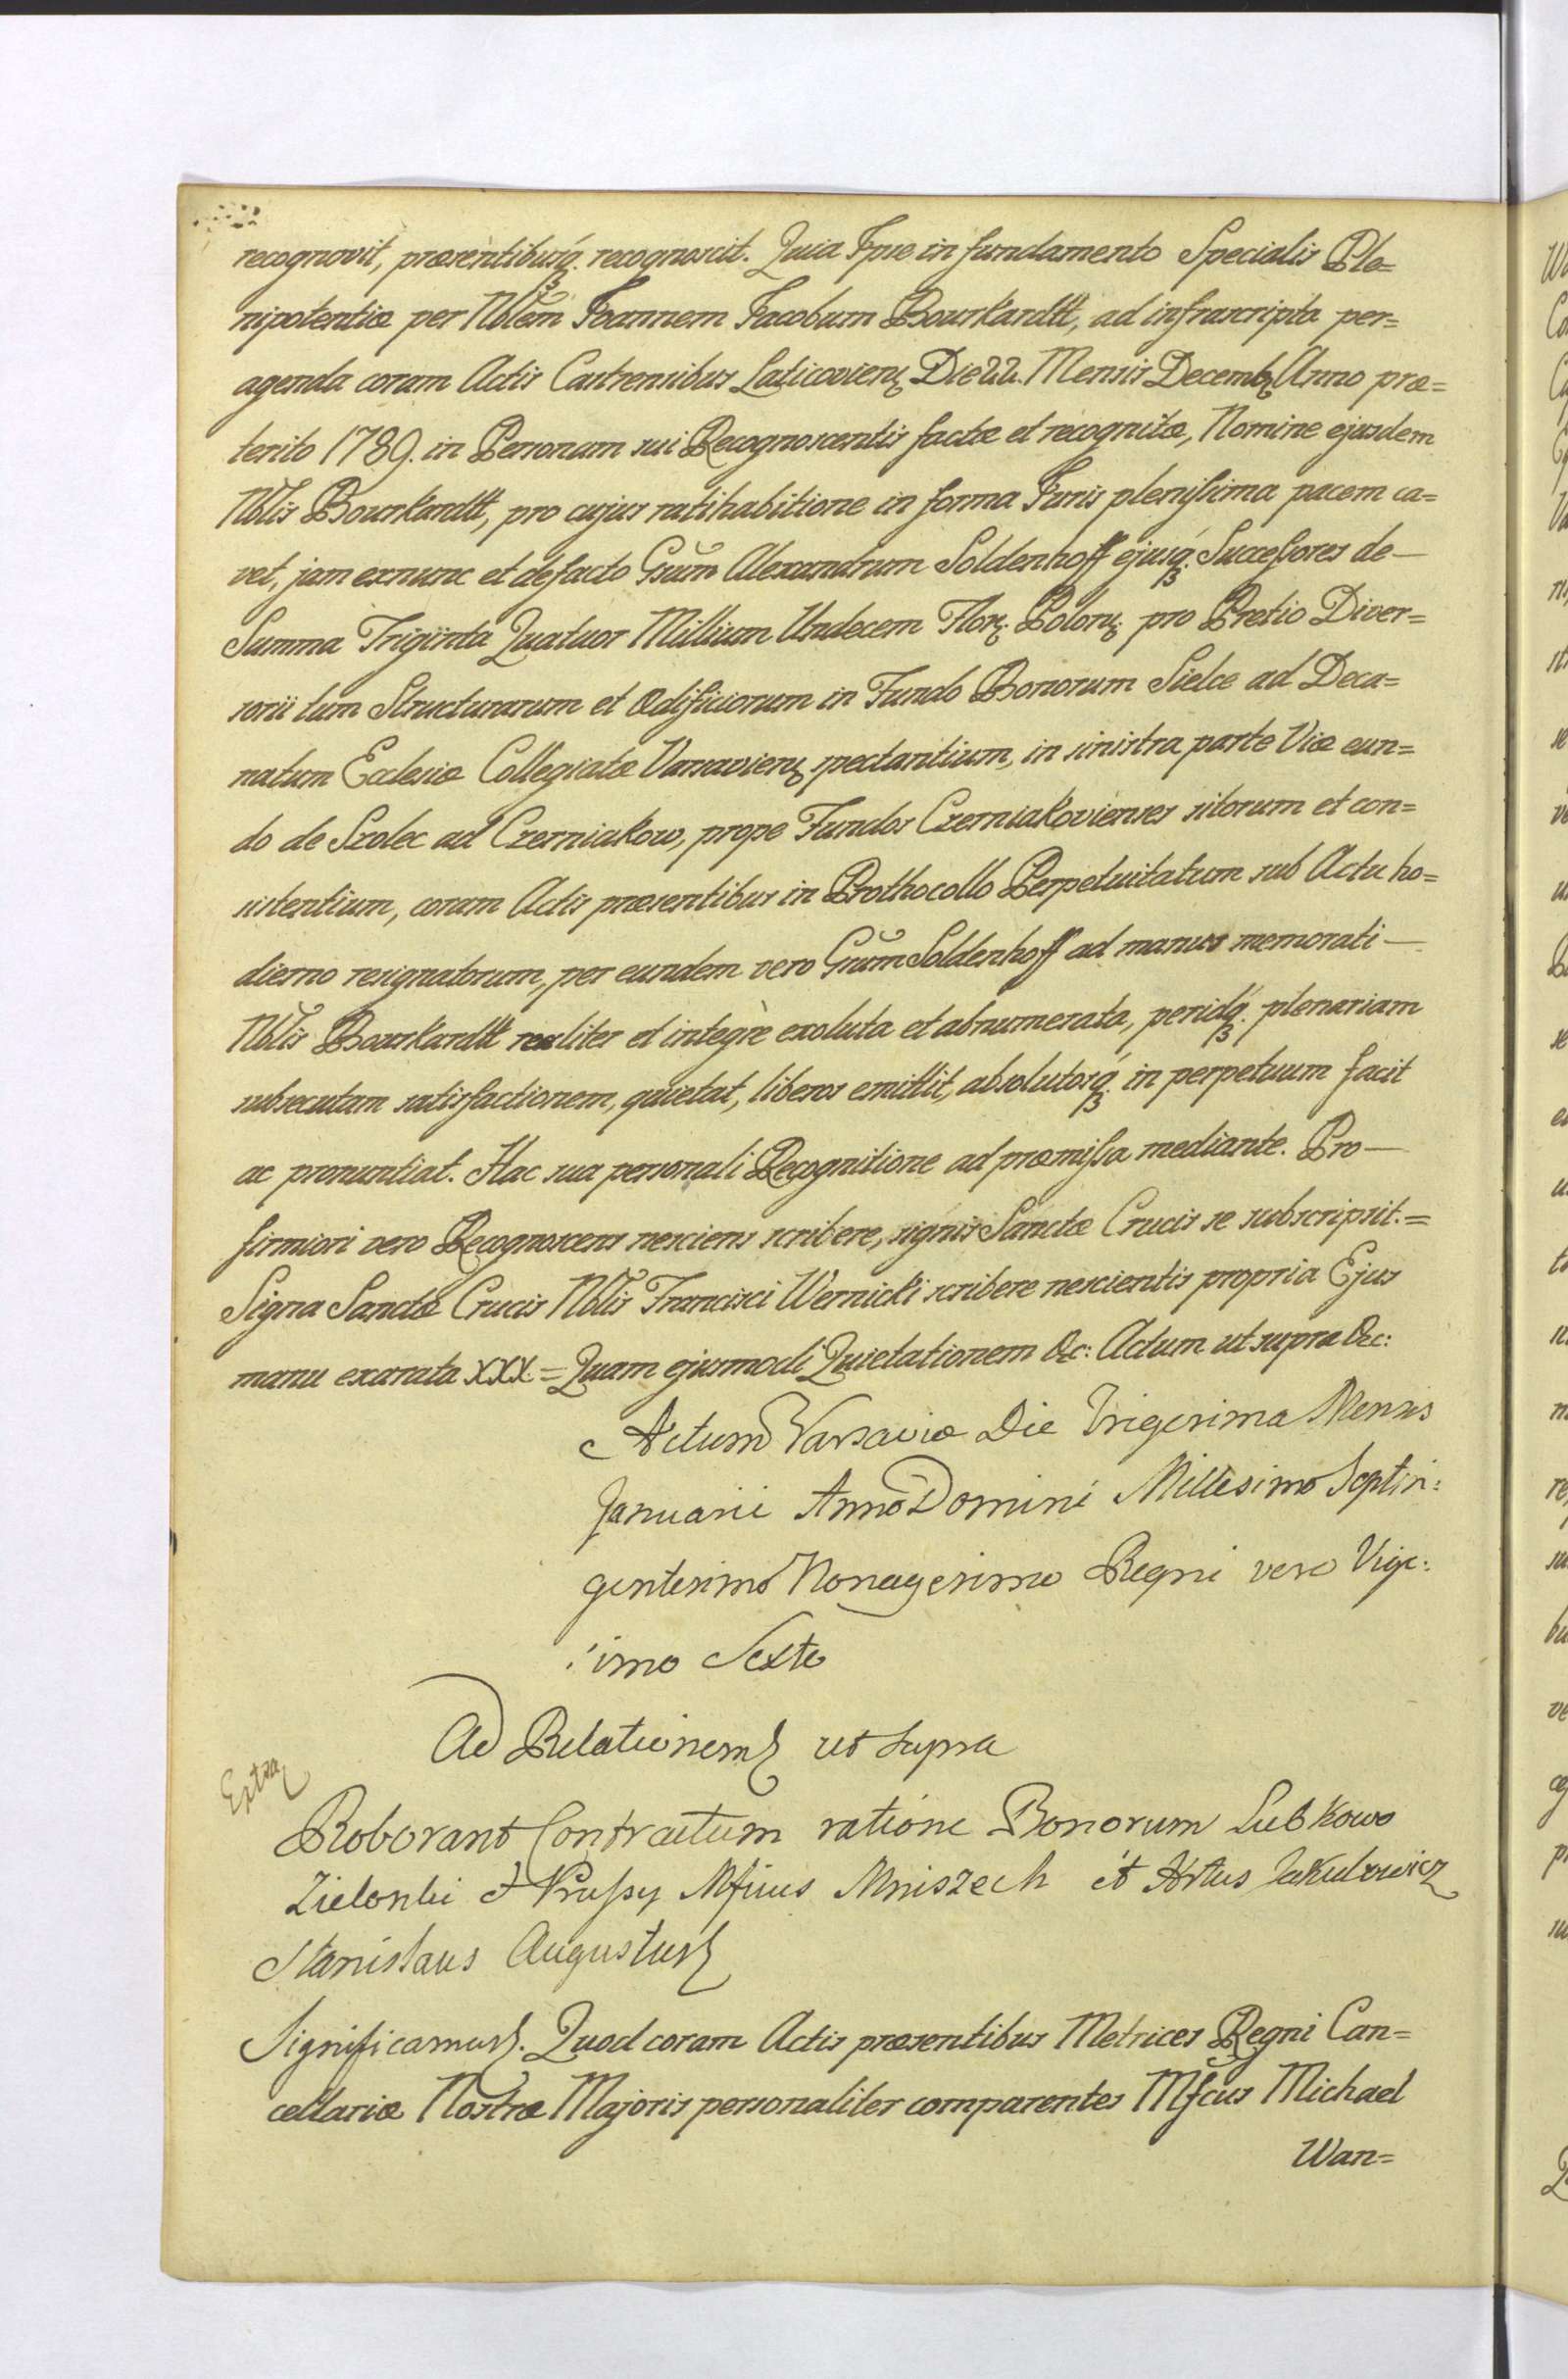 recognovit, præsentibusq́ꝫ recognoscit. Quia Ipse in fundamento Specialis Ple=
nipotentiæ per Nobl̃em Joannem Jacobum Bourkardtt, ad infrascripta per=
agenda coram Actis Castrensibus Laticoviens. Die 22. Mensis Decemb. Anno præ=
terito 1789. in Personam sui Recognoscentis factæ et recognitæ, Nomine ejusdem
Nblis Bourkardtt, pro cujus ratihabitione in forma Juris plenissima pacem ca=
vet, jam exnunc et defacto Gsum Alexandrum Soldenhoff ejusq́ꝫ Successores de—
Summa Triginta Quatuor Millium Undecem Flor. Polon. pro Pretio Diver=
sorii tum Structurarum et ædificiorum in Fundo Bonorum Sielce ad Deca=
natum Ecclesiæ Collegiatæ Varsaviens. spectantium, in sinistra parte Viæ eun=
do de Szolec ad Czerniakow, prope Fundos Czerniakovienses sitorum et con=
sistentium, coram Actis præsentibus in Prothocollo Perpetuitatum sub Actu ho=
dierno resignatorum, per eundem vero Gsum Soldenhoff ad manus memorati—
Nblis Bourkardtt realiter et integrè exoluta et abnumerata, peridq́ꝫ plenariam
subsecutam satisfactionem, quietat, liberos emittit, absolutosq́ꝫ in perpetuum facit
ac pronuntiat. Hac sua personali Recognitione ad præmissa mediante. Pro—
firmiori vero Recognoscens nesciens scribere, signis Sanctæ Crucis se subscripsit.=
Signa Sanctæ Crucis Nblis Francisci Wernicki scribere nescientis propria Ejus
manu exarata XXX.= Quam ejusmodi Quietationem &c: Actum ut supra &c:
Actum Varsaviæ Die Trigesima Mensis
Januarii Anno Domini Millesimo Septin:
gentesimo Nonagesimo Regni vero Vige:
simo Sexto
Ad Relationem ut supra
Extra
Roborant Contractum ratione Bonorum Lubkowo
Zielonki et Prussy Mficus Mniszech et Jakubowicz
Stanislaus Augustus
Significamus. Quod coram Actis præsentibus Metrices Regni Can=
cellariæ Nostræ Majoris personaliter comparentes Mfcus Michael
Wan=